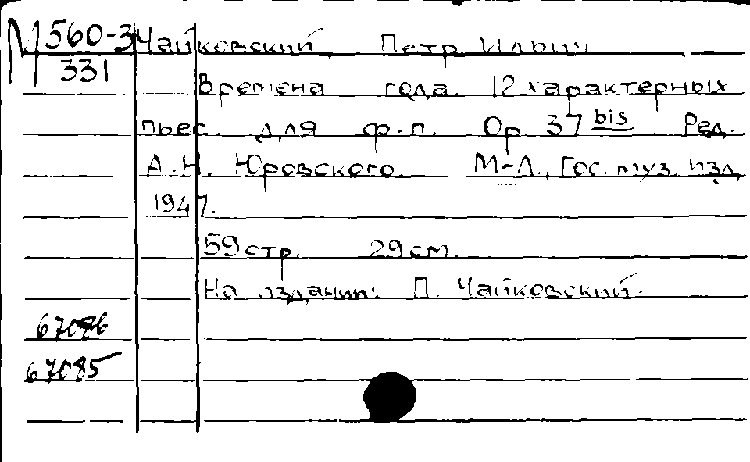 М 560-3 Чайковский Петр Ильич
331
Времена года. 12 характерных
пьес для ф.-п. Op. 37 bis Ред.
А.Н. Юровского. М-Л., Гос. муз. изд.
1947.
59 стр. 29 см.
На издании: П. Чайковский.
67086
67085